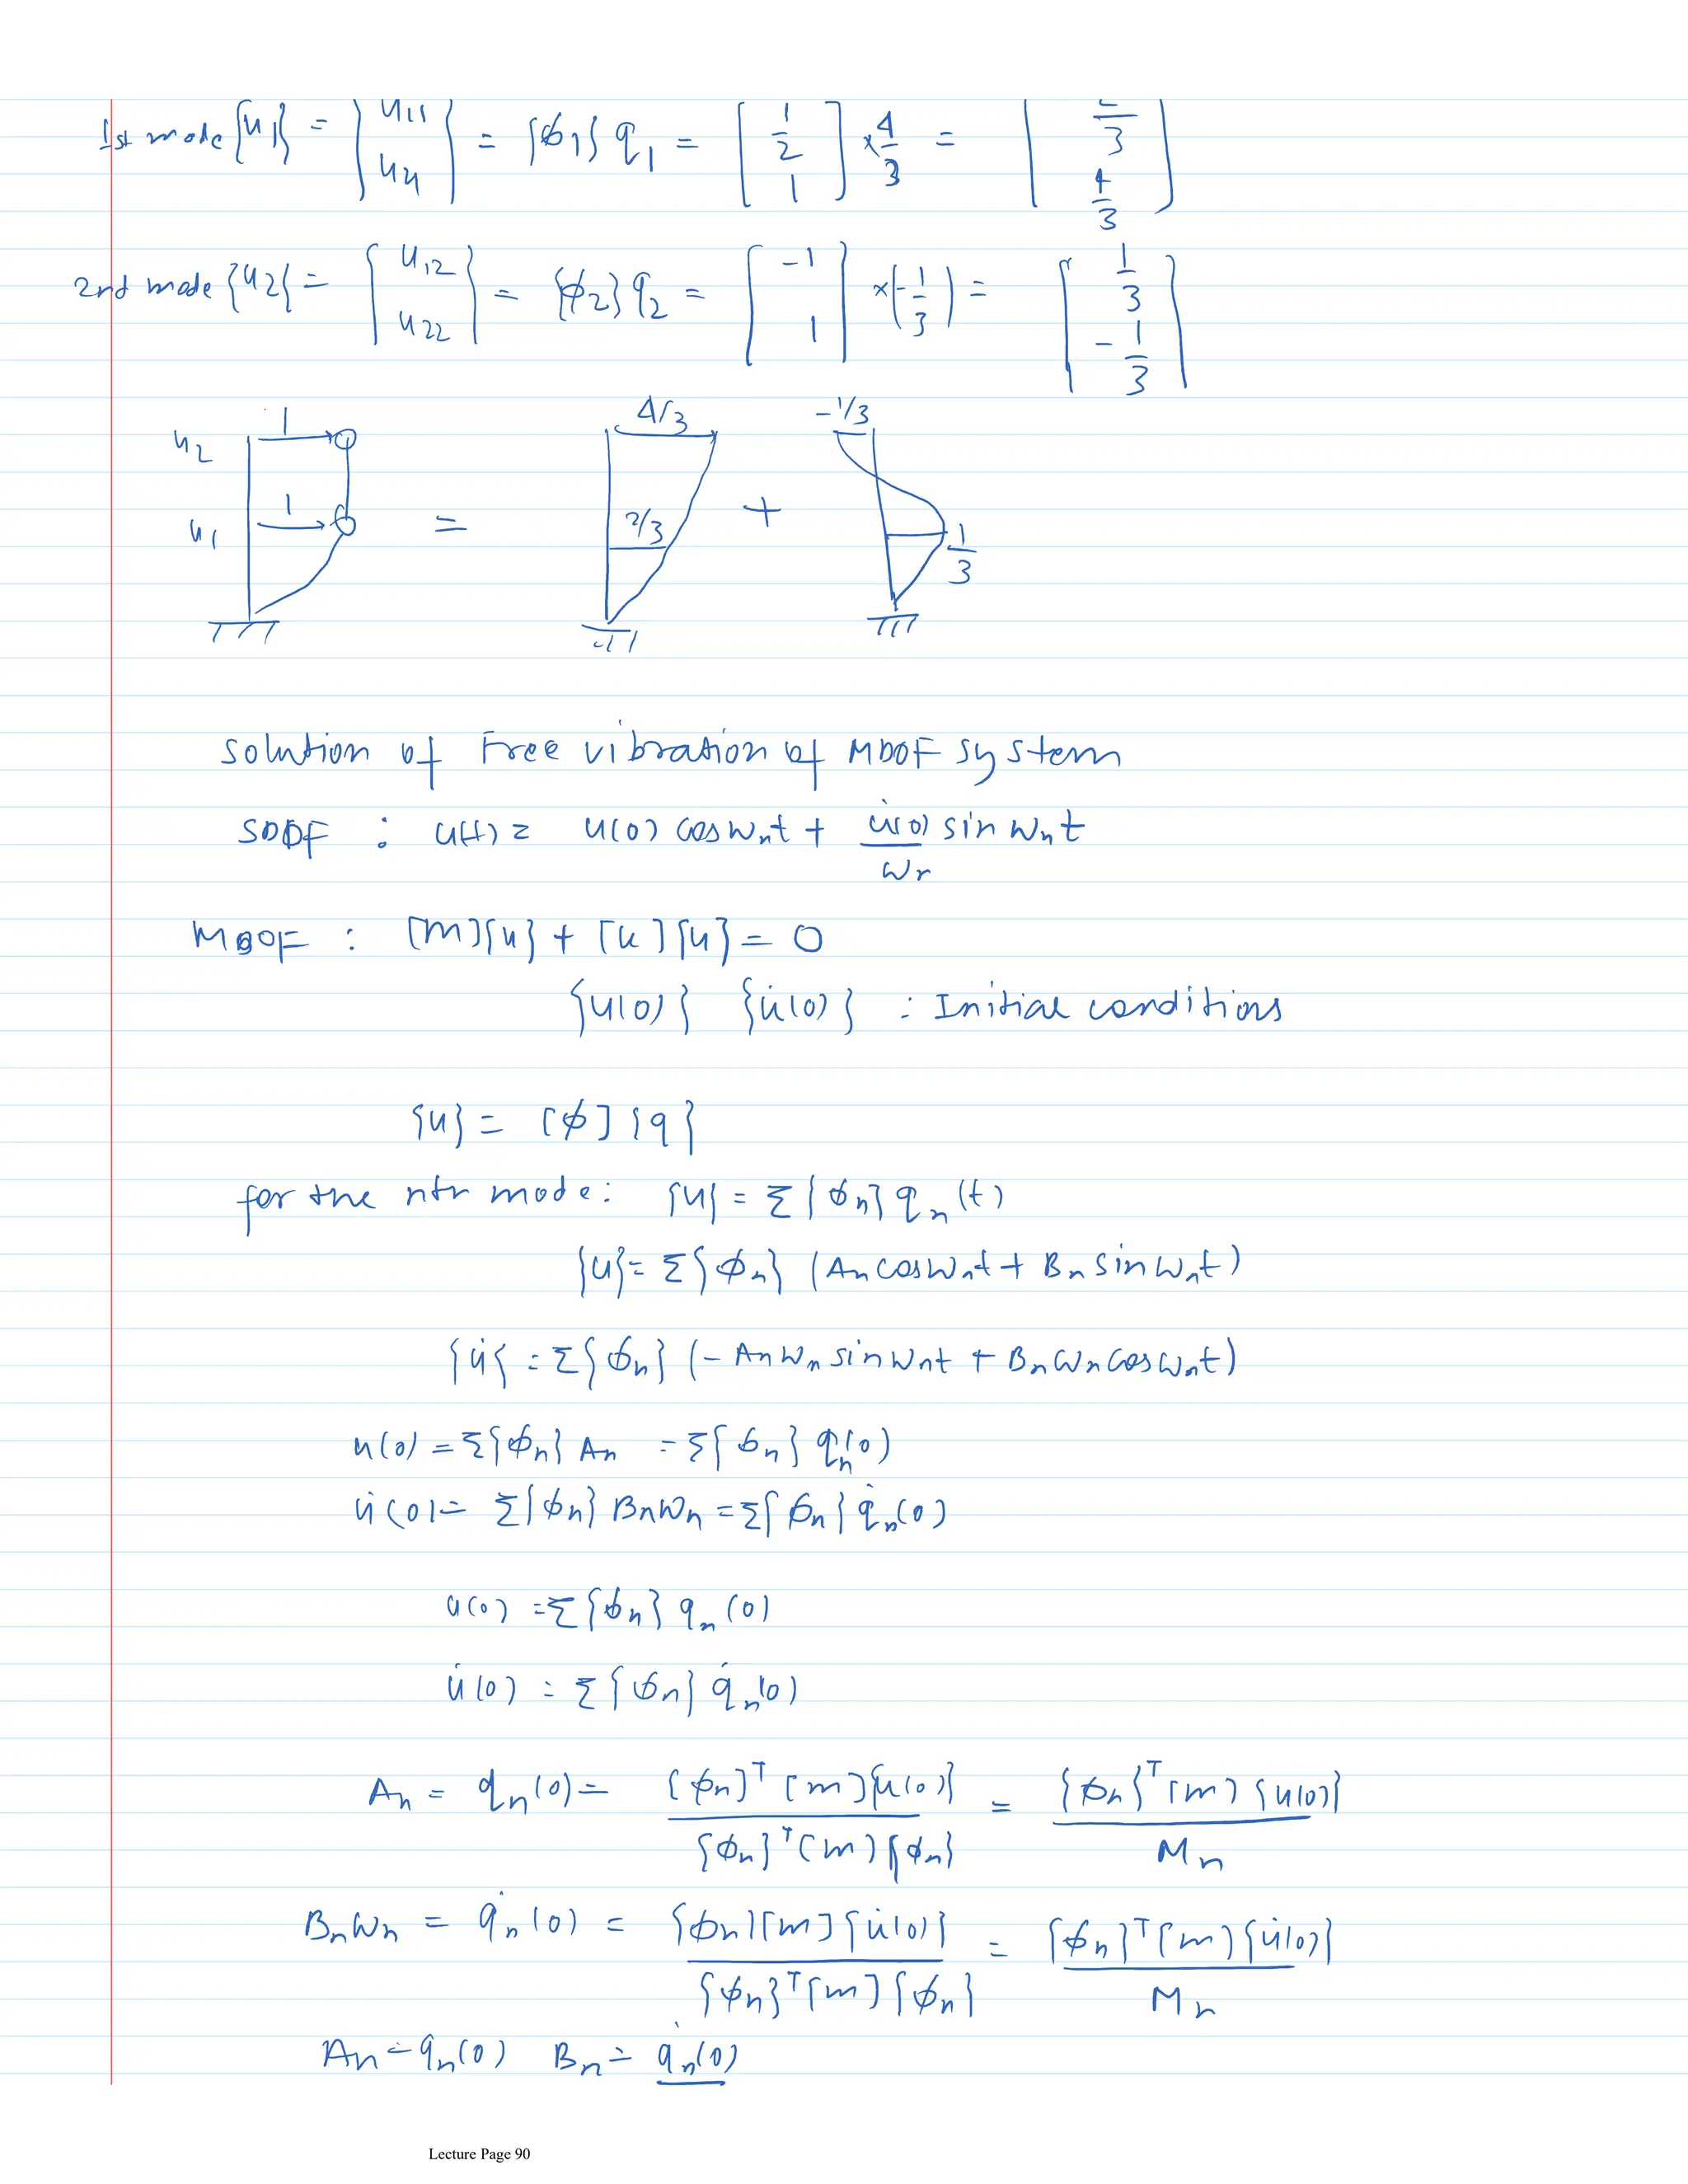 1st mode {u1} = {u11 u21} = {ϕ1} q1 = [1/2 1] x 4/3 = [2/3 4/3]
2nd mode {u2} = {u12 u22} = {ϕ2} q2 = [-1 1] x(-1/3) = [1/3 -1/3]
u2 1 4/3 -1/3
u1 1 = 2/3 + 1/3
Solution of Free vibration of MDOF system
SDOF : u(t) = u(0) cos wnt + u̇(0)/wn sin wnt
MDOF : [m]{u} + [k]{u} = 0
{u(0)} {u̇(0)} : Initial conditions
{u} = [ϕ]{q}
for the nth mode: {u} = Σ{ϕn} qn(t)
{u} = Σ{ϕn} (An cos wnt + Bn sin wnt)
{u̇} = Σ{ϕn} (- An wn sin wnt + Bn wn cos wnt)
u(0) = Σ{ϕn} An = Σ{ϕn} qn(0)
u̇(0) = Σ{ϕn} Bn wn = Σ{ϕn} q̇n(0)
u(0) = Σ{ϕn} qn(0)
u̇(0) = Σ{ϕn} q̇n(0)
An = qn(0) = {ϕn}ᵀ[m]{u(0)} / {ϕn}ᵀ[m]{ϕn} = {ϕn}ᵀ[m]{u(0)} / Mn
Bn wn = q̇n(0) = {ϕn}[m]{u̇(0)} / {ϕn}ᵀ[m]{ϕn} = {ϕn}ᵀ[m]{u̇(0)} / Mn
An = qn(0) Bn = q̇n(0)
Lecture Page 90